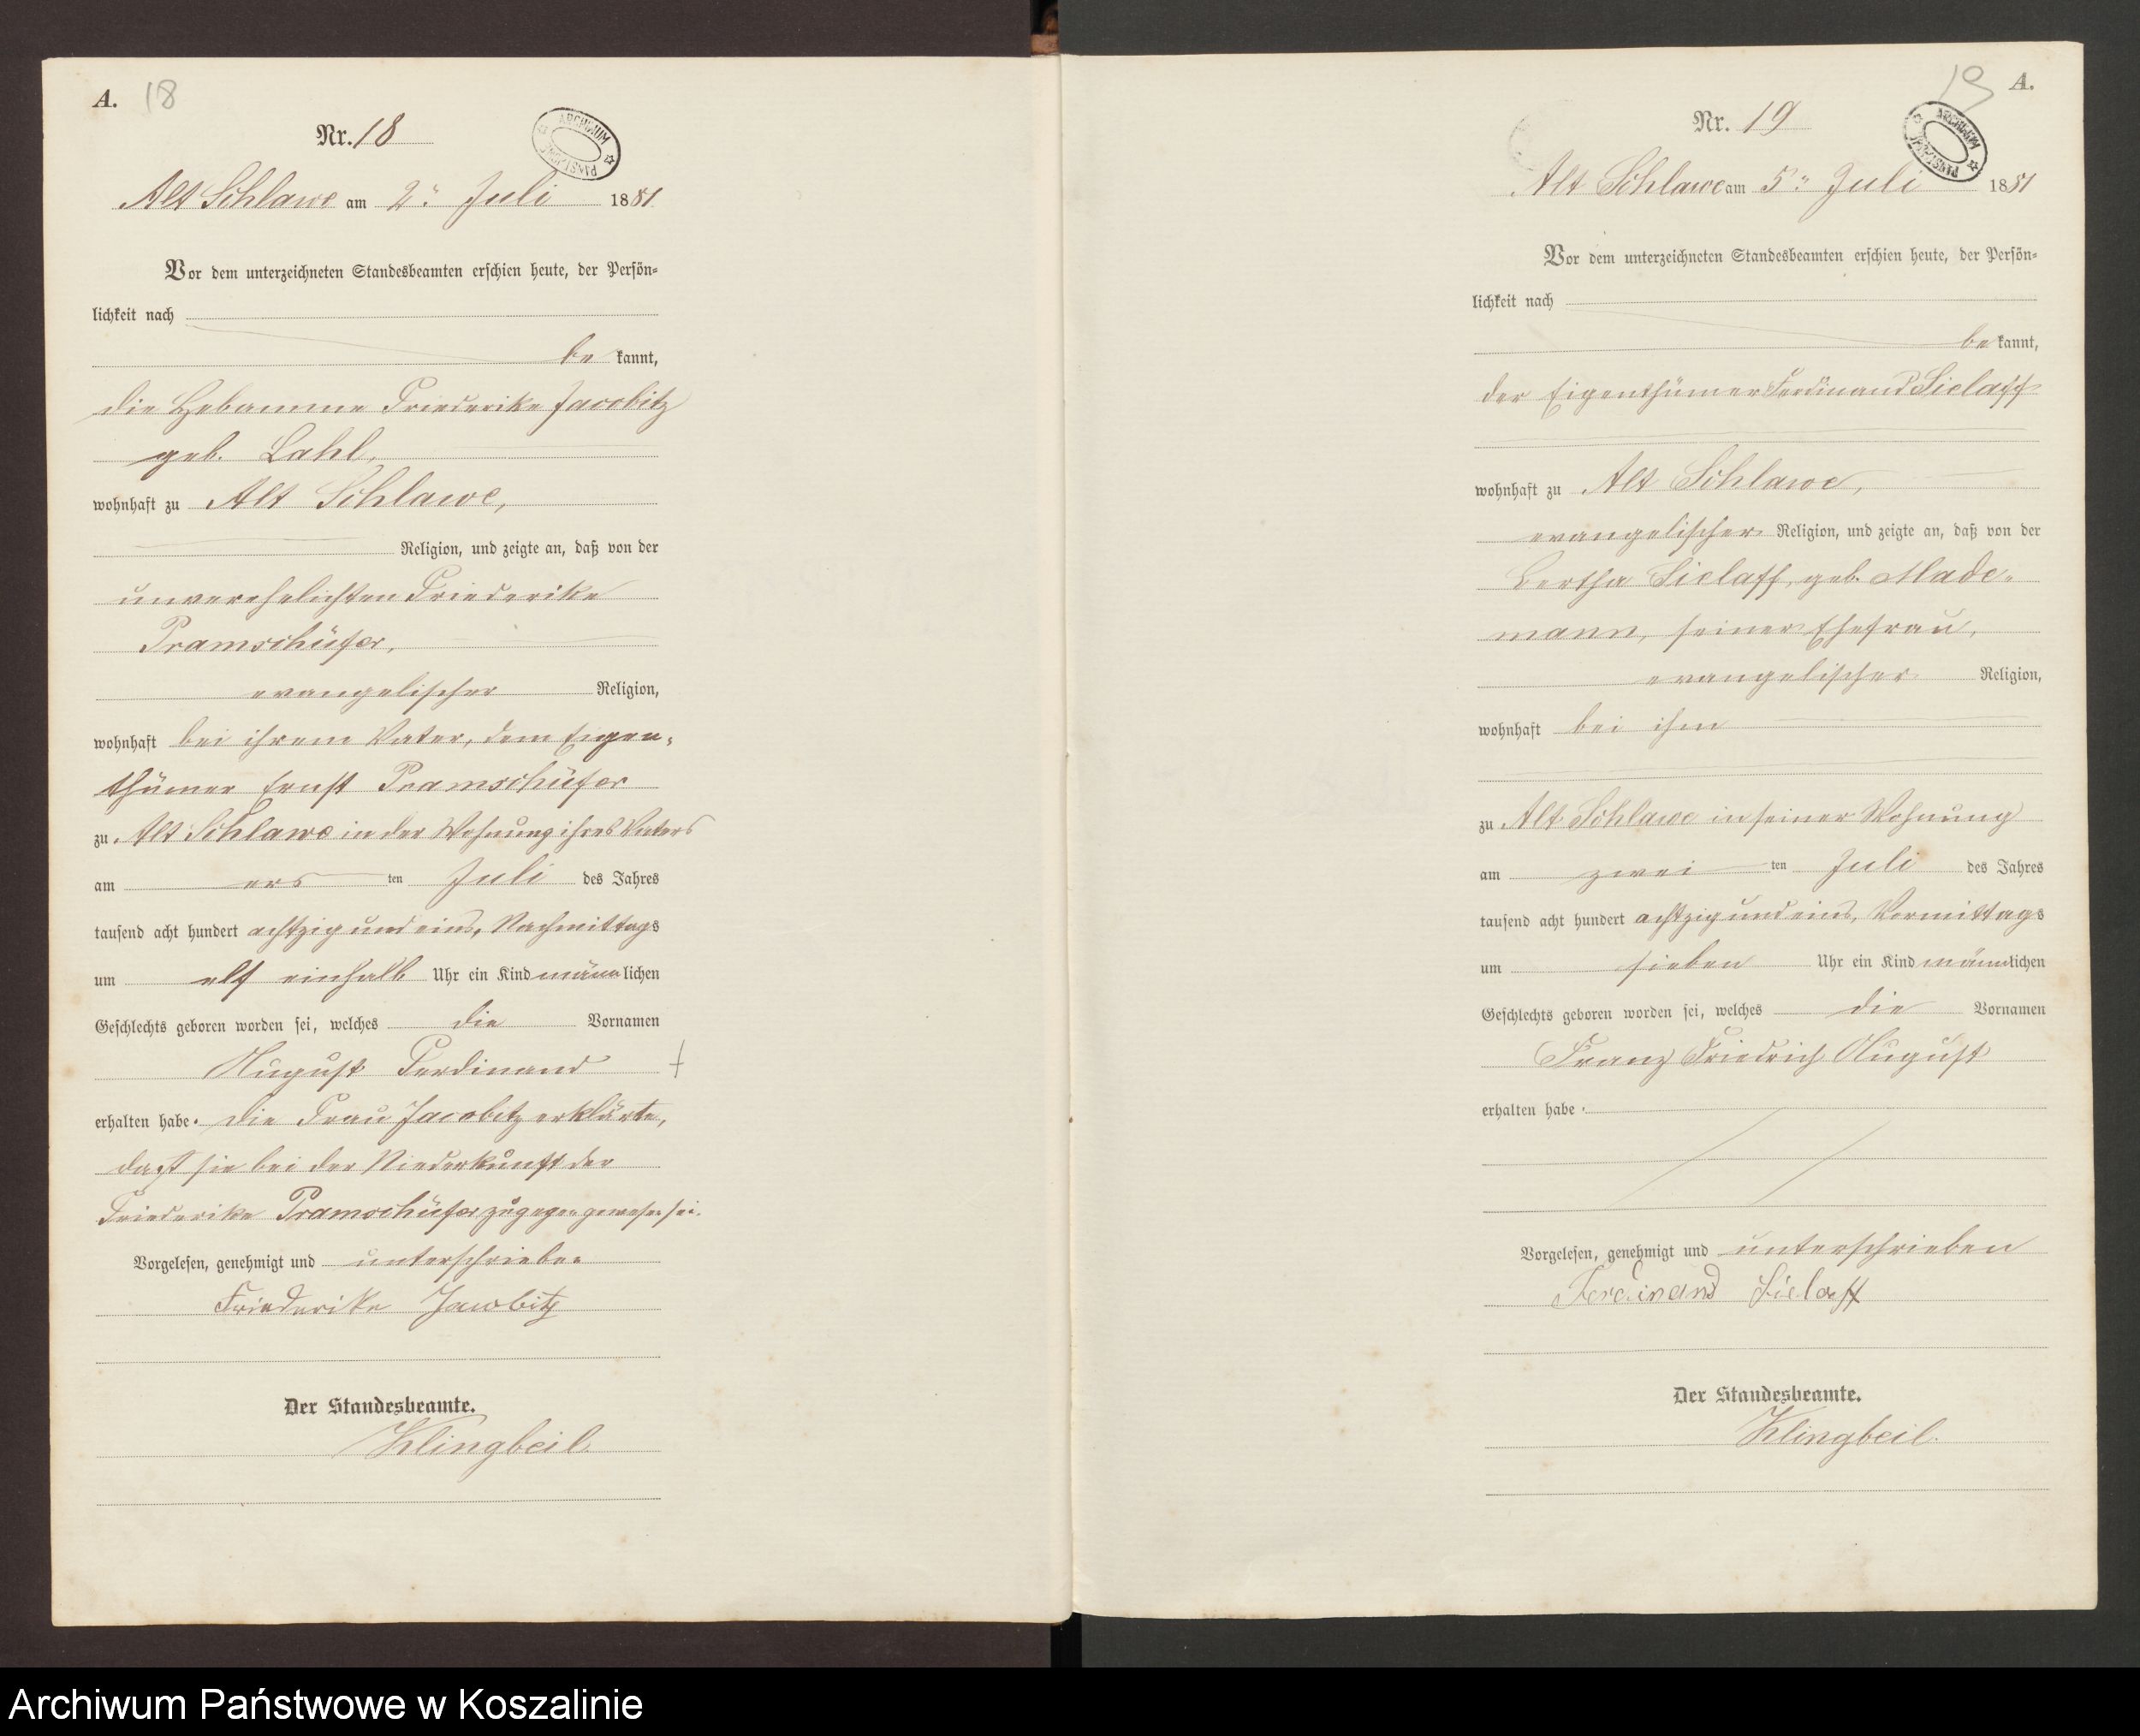 A. 18
Nr. 18
ARCHIWUM PAŃSTWOWE
Alt Schlawe am 2ⁿ Juli 1881
Vor dem unterzeichneten Standesbeamten erschien heute, der Persön-
lichkeit nach
be kannt,
die Hebamme Friederike Jacobitz
geb. Lahl,
wohnhaft zu Alt Schlawe,
Religion, und zeigte an, daß von der
unverehelichten Friederike
Pramschüfer,
evangelischer Religion,
wohnhaft bei ihrem Vater, dem Eigen-
thümer Ernst Pramschüfer
zu Alt Schlawe in der Wohnung ihres Vaters
am ers ten Juli des Jahres
tausend acht hundert achtzig und eins, Nachmittags
um elf einhalb Uhr ein Kind männlichen
Geschlechts geboren worden sei, welches die Vornamen
August Ferdinand
erhalten habe. Die Frau Jacobitz erklärte,
daß sie bei der Niederkunft der
Friederike Pramschüfer zugegen gewesen sei.
Vorgelesen, genehmigt und unterschrieben
Friederike Jacobitz
Der Standesbeamte.
Klingbeil
19 A.
Nr. 19
ARCHIWUM PAŃSTWOWE
Alt Schlawe am 5ⁿ Juli 1881
Vor dem unterzeichneten Standesbeamten erschien heute, der Persön-
lichkeit nach
be kannt,
der Eigenthümer Ferdinand Sielaff
wohnhaft zu Alt Schlawe,
evangelischer Religion, und zeigte an, daß von der
Bertha Sielaff, geb. Made-
mann, seiner Ehefrau,
evangelischer Religion,
wohnhaft bei ihm
zu Alt Schlawe in seiner Wohnung
am zwei ten Juli des Jahres
tausend acht hundert achtzig und eins, Vormittags
um sieben Uhr ein Kind männlichen
Geschlechts geboren worden sei, welches die Vornamen
Franz Friedrich August
erhalten habe.
Vorgelesen, genehmigt und unterschrieben
Ferdinand Sielaff
Der Standesbeamte.
Klingbeil
Archiwum Państwowe w Koszalinie